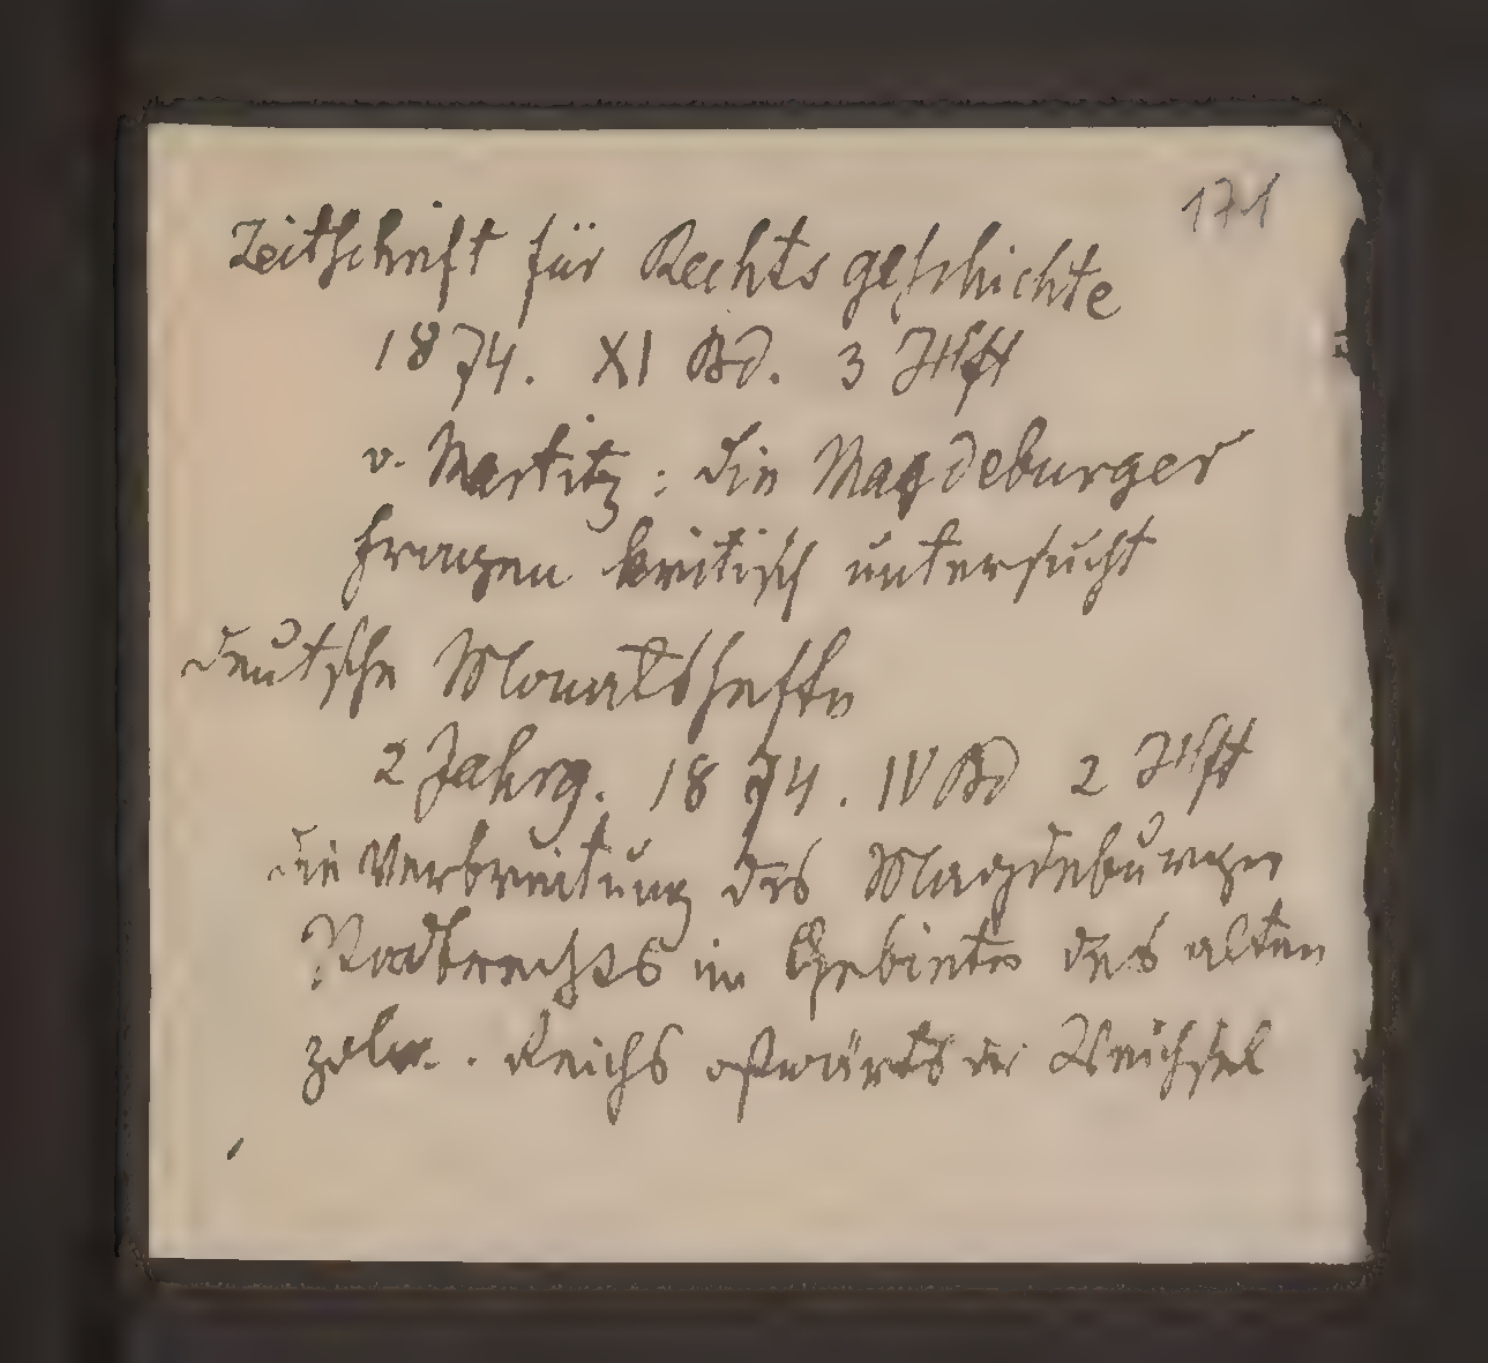 171
Zeitschrift für Rechtsgeschichte
1874. XI Bd. 3 Hft
v. Martitz: die Magdeburger
Fragen kritisch untersucht
deutsche Monatshefte
2 Jahrg. 1874. IV Bd 2 Hft
die Verbreitung des Magdeburger
Stadtrechts im Gebiete des alten
poln. Reichs ostwärts der Weichsel